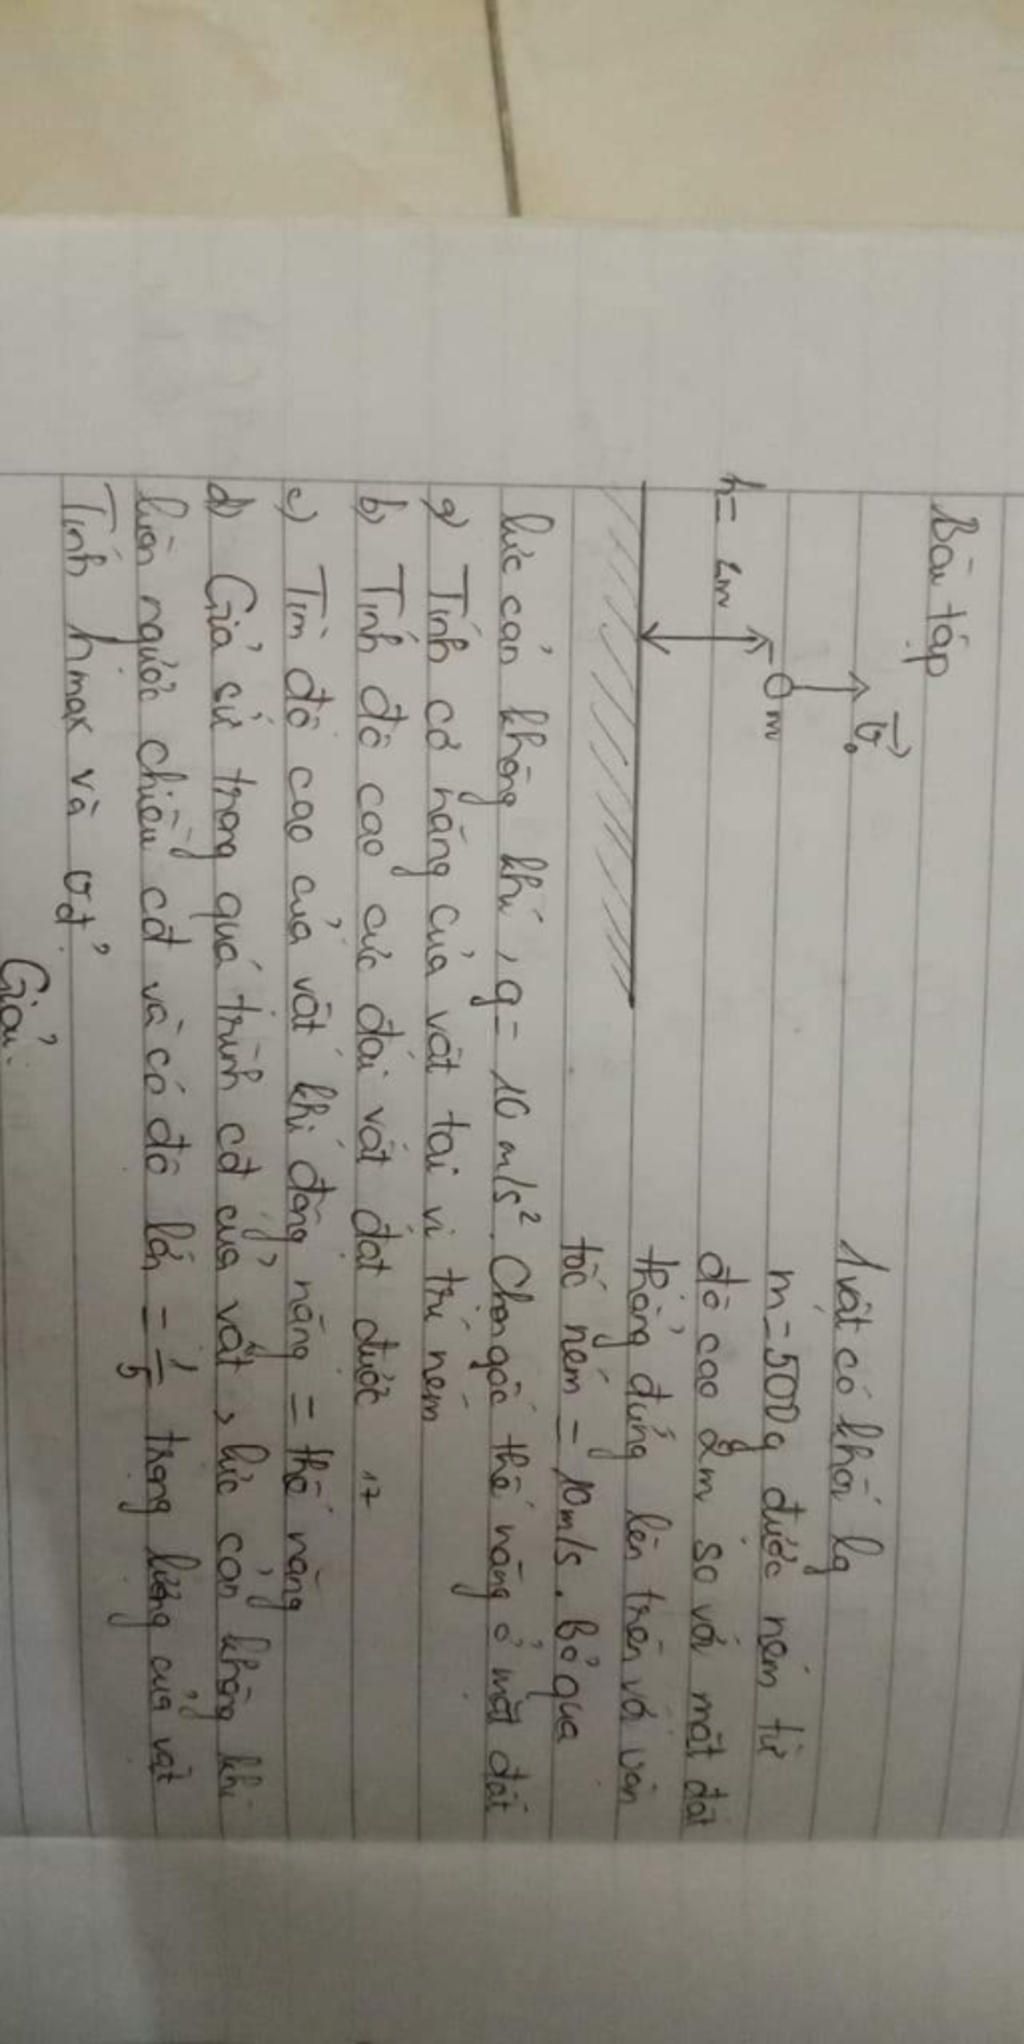 Bài tập
v₀
m
h = 2m
1 vật có khối lg
m = 500g được ném từ
độ cao 2m so với mặt đất
thẳng đứng lên trên với vận
tốc ném = 10m/s. Bỏ qua
lực cản không khí, g = 10 m/s². Chọn gốc thế năng ở mặt đất
a) Tính cơ năng của vật tại vị trí ném
b) Tính độ cao cực đại vật đạt được
c) Tìm độ cao của vật khi động năng = thế năng
d) Giả sử trong quá trình cđ của vật, lực cản không khí
luôn ngược chiều cđ và có độ lớn = 1/5 trọng lượng của vật
Tính hmax và vđ.
Giải.